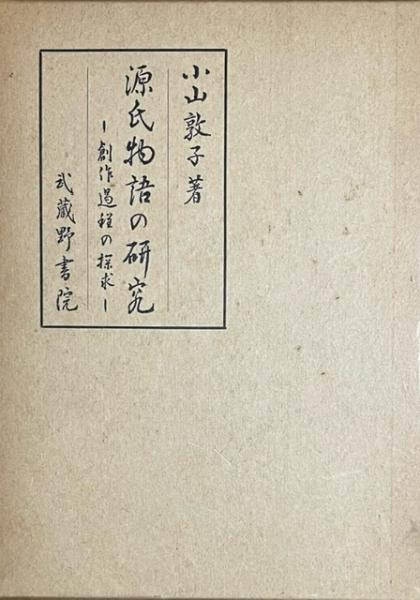 小山敦子著
源氏物語の研究
―創作過程の探求―
武蔵野書院